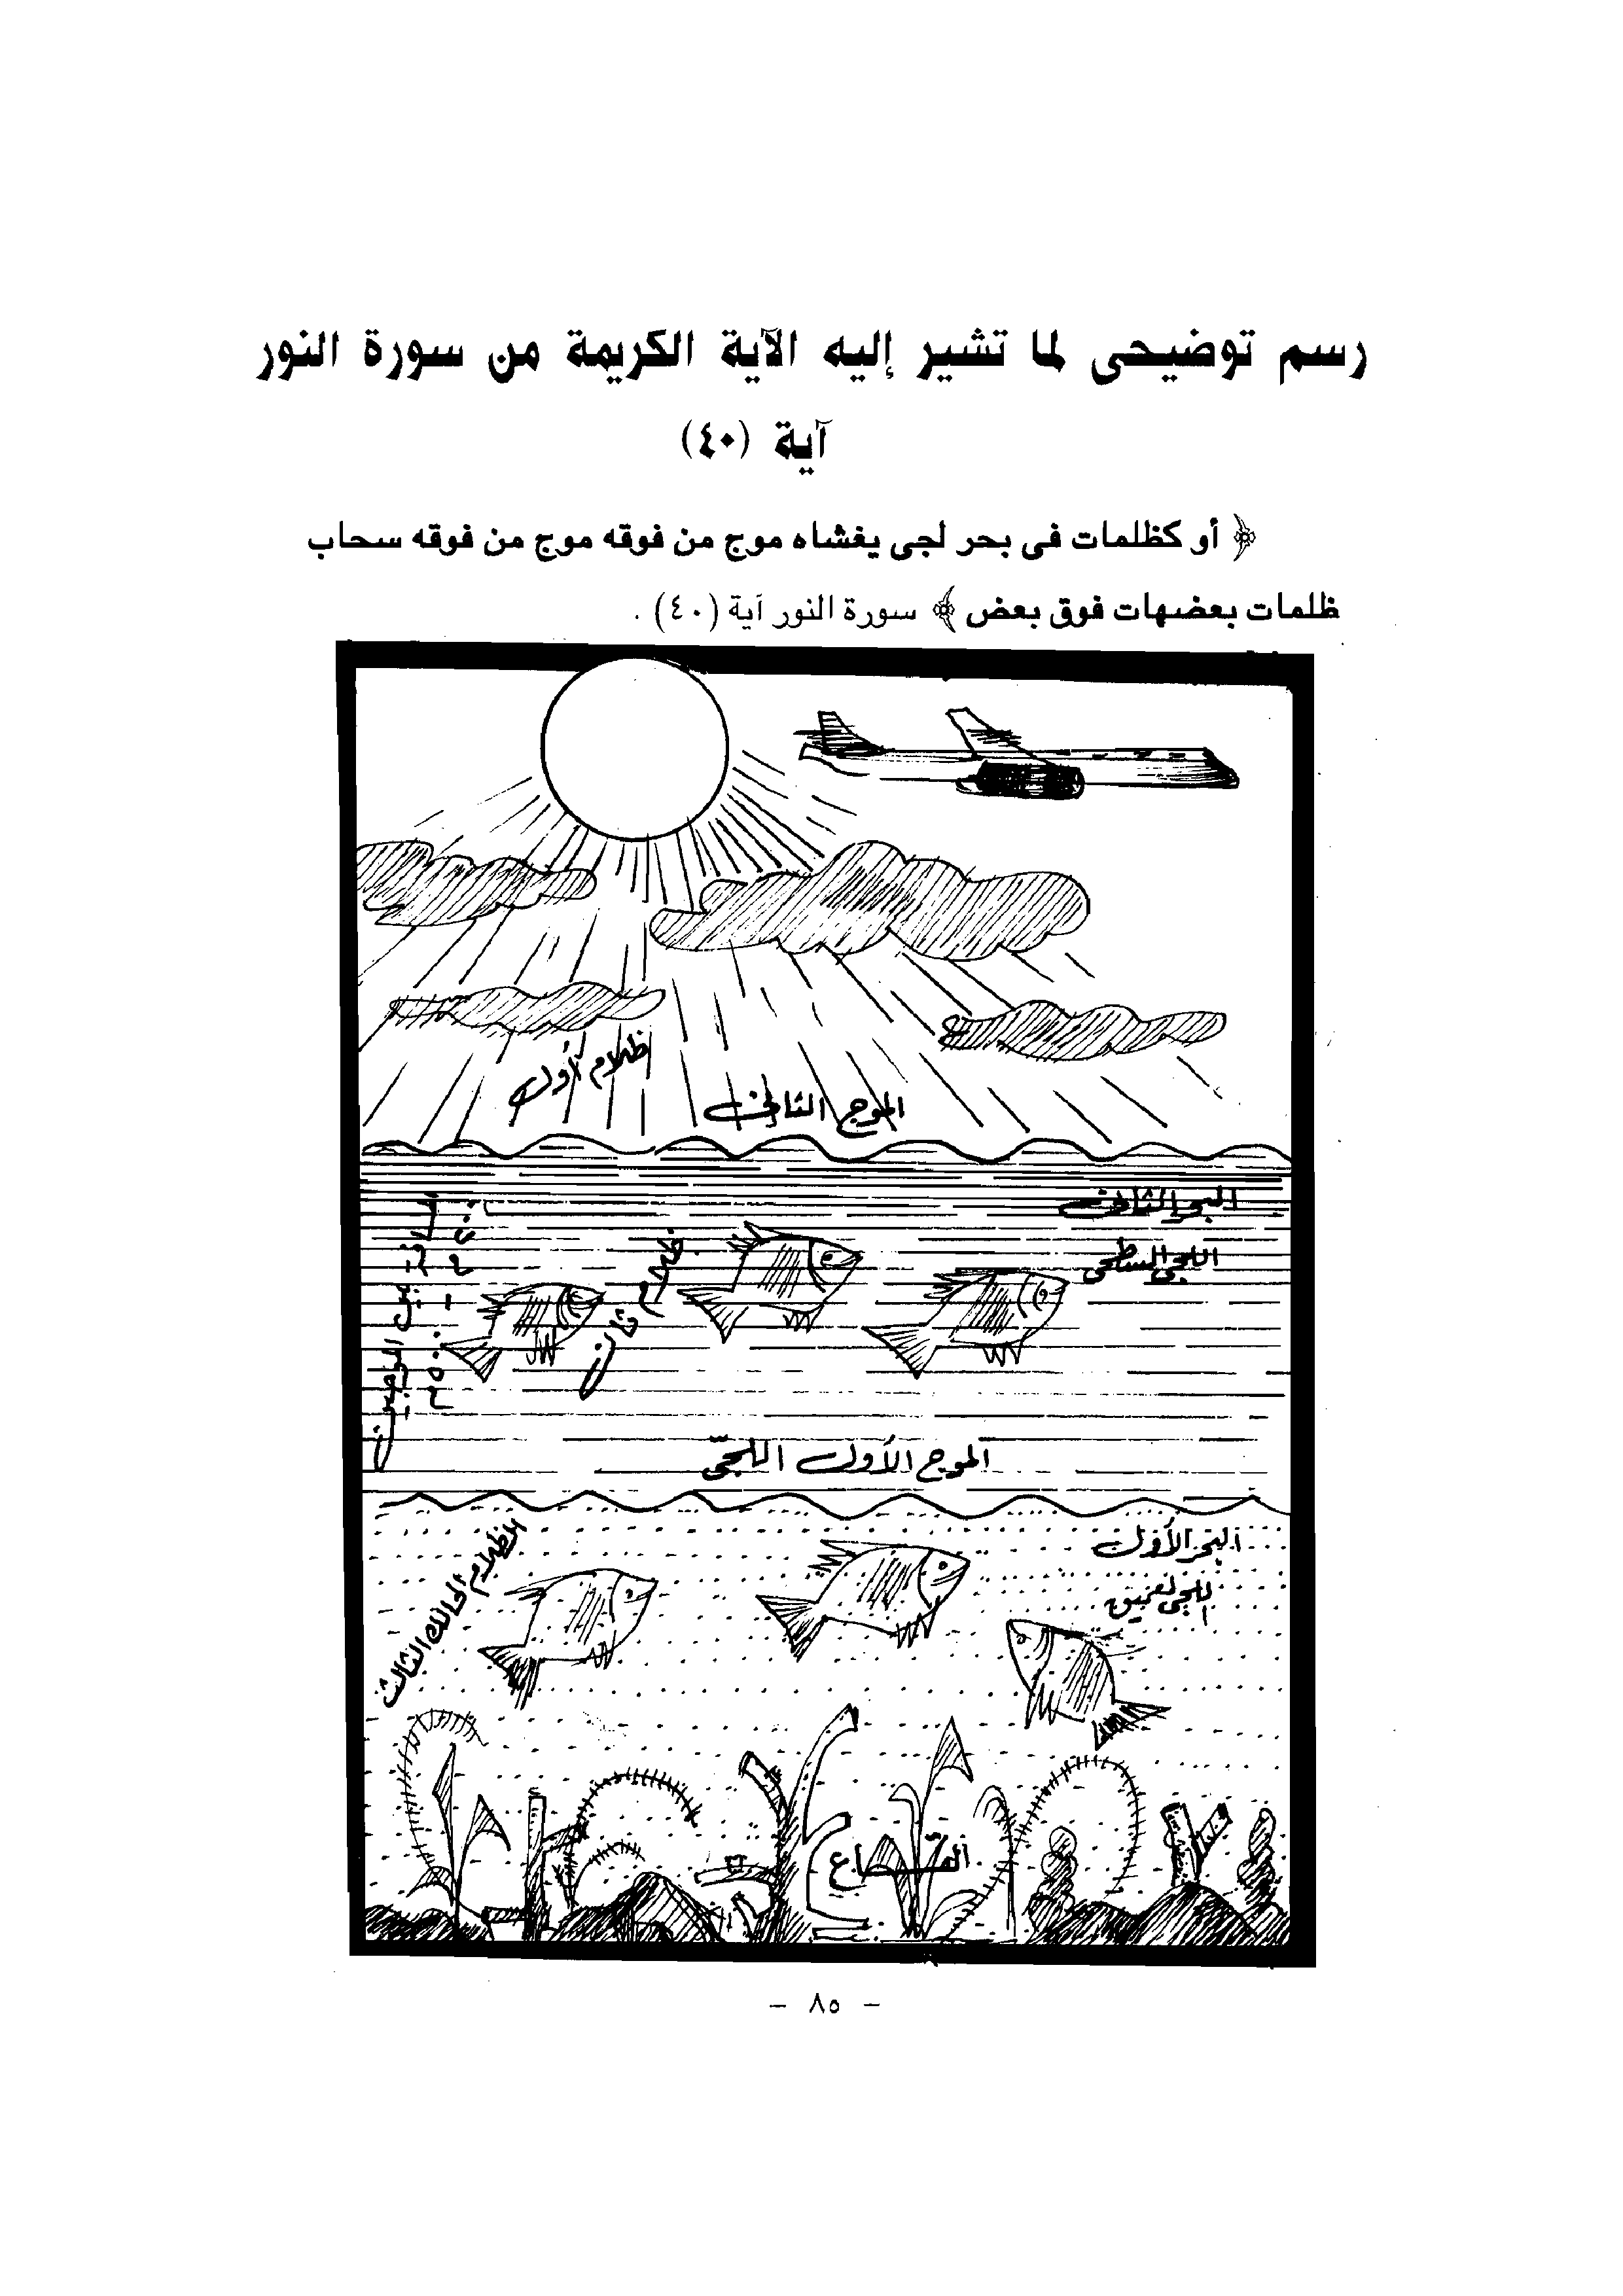 رسم توضيحى لما تشير إليه الآية الكريمة من سورة النور
آية (٤٠)
﴿ أو كظلمات فى بحر لجى يغشاه موج من فوقه موج من فوقه سحاب
ظلمات بعضهات فوق بعض ﴾ سورة النور آية (٤٠) .
ظلام أول
الموج الثانى
البحر الثانى
اللجى السطحى
ظلام ثانى
بين الموجين
الموج الأول اللجىّ
البحر الأول
اللجى لعميق
الظلام الحالك الثالث
القاع
- ٨٥ -